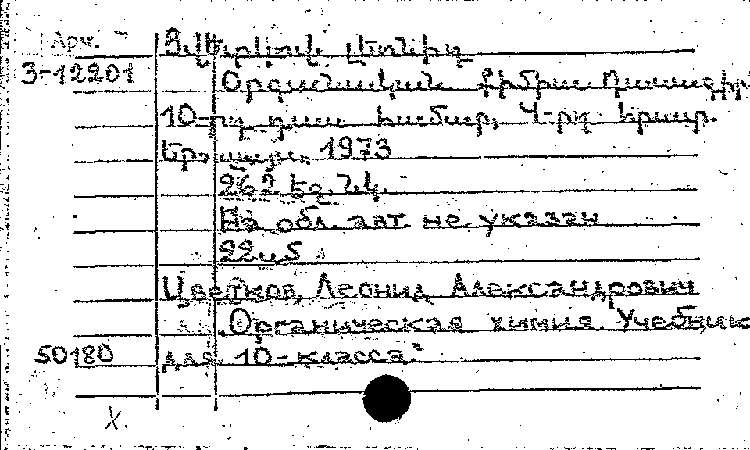 Арм.
Ցվետկով Լեոնիդ
3-12201
Օրգանական քիմիա Դասագիրք
10-րդ դաս. համար, 4-րդ հրատ.
Երևան, 1973
262 էջ. նկ.
На обл. авт. не указан
Цветков, Леонид Александрович
Органическая химия. Учебник
50180
для 10-класса.
X.